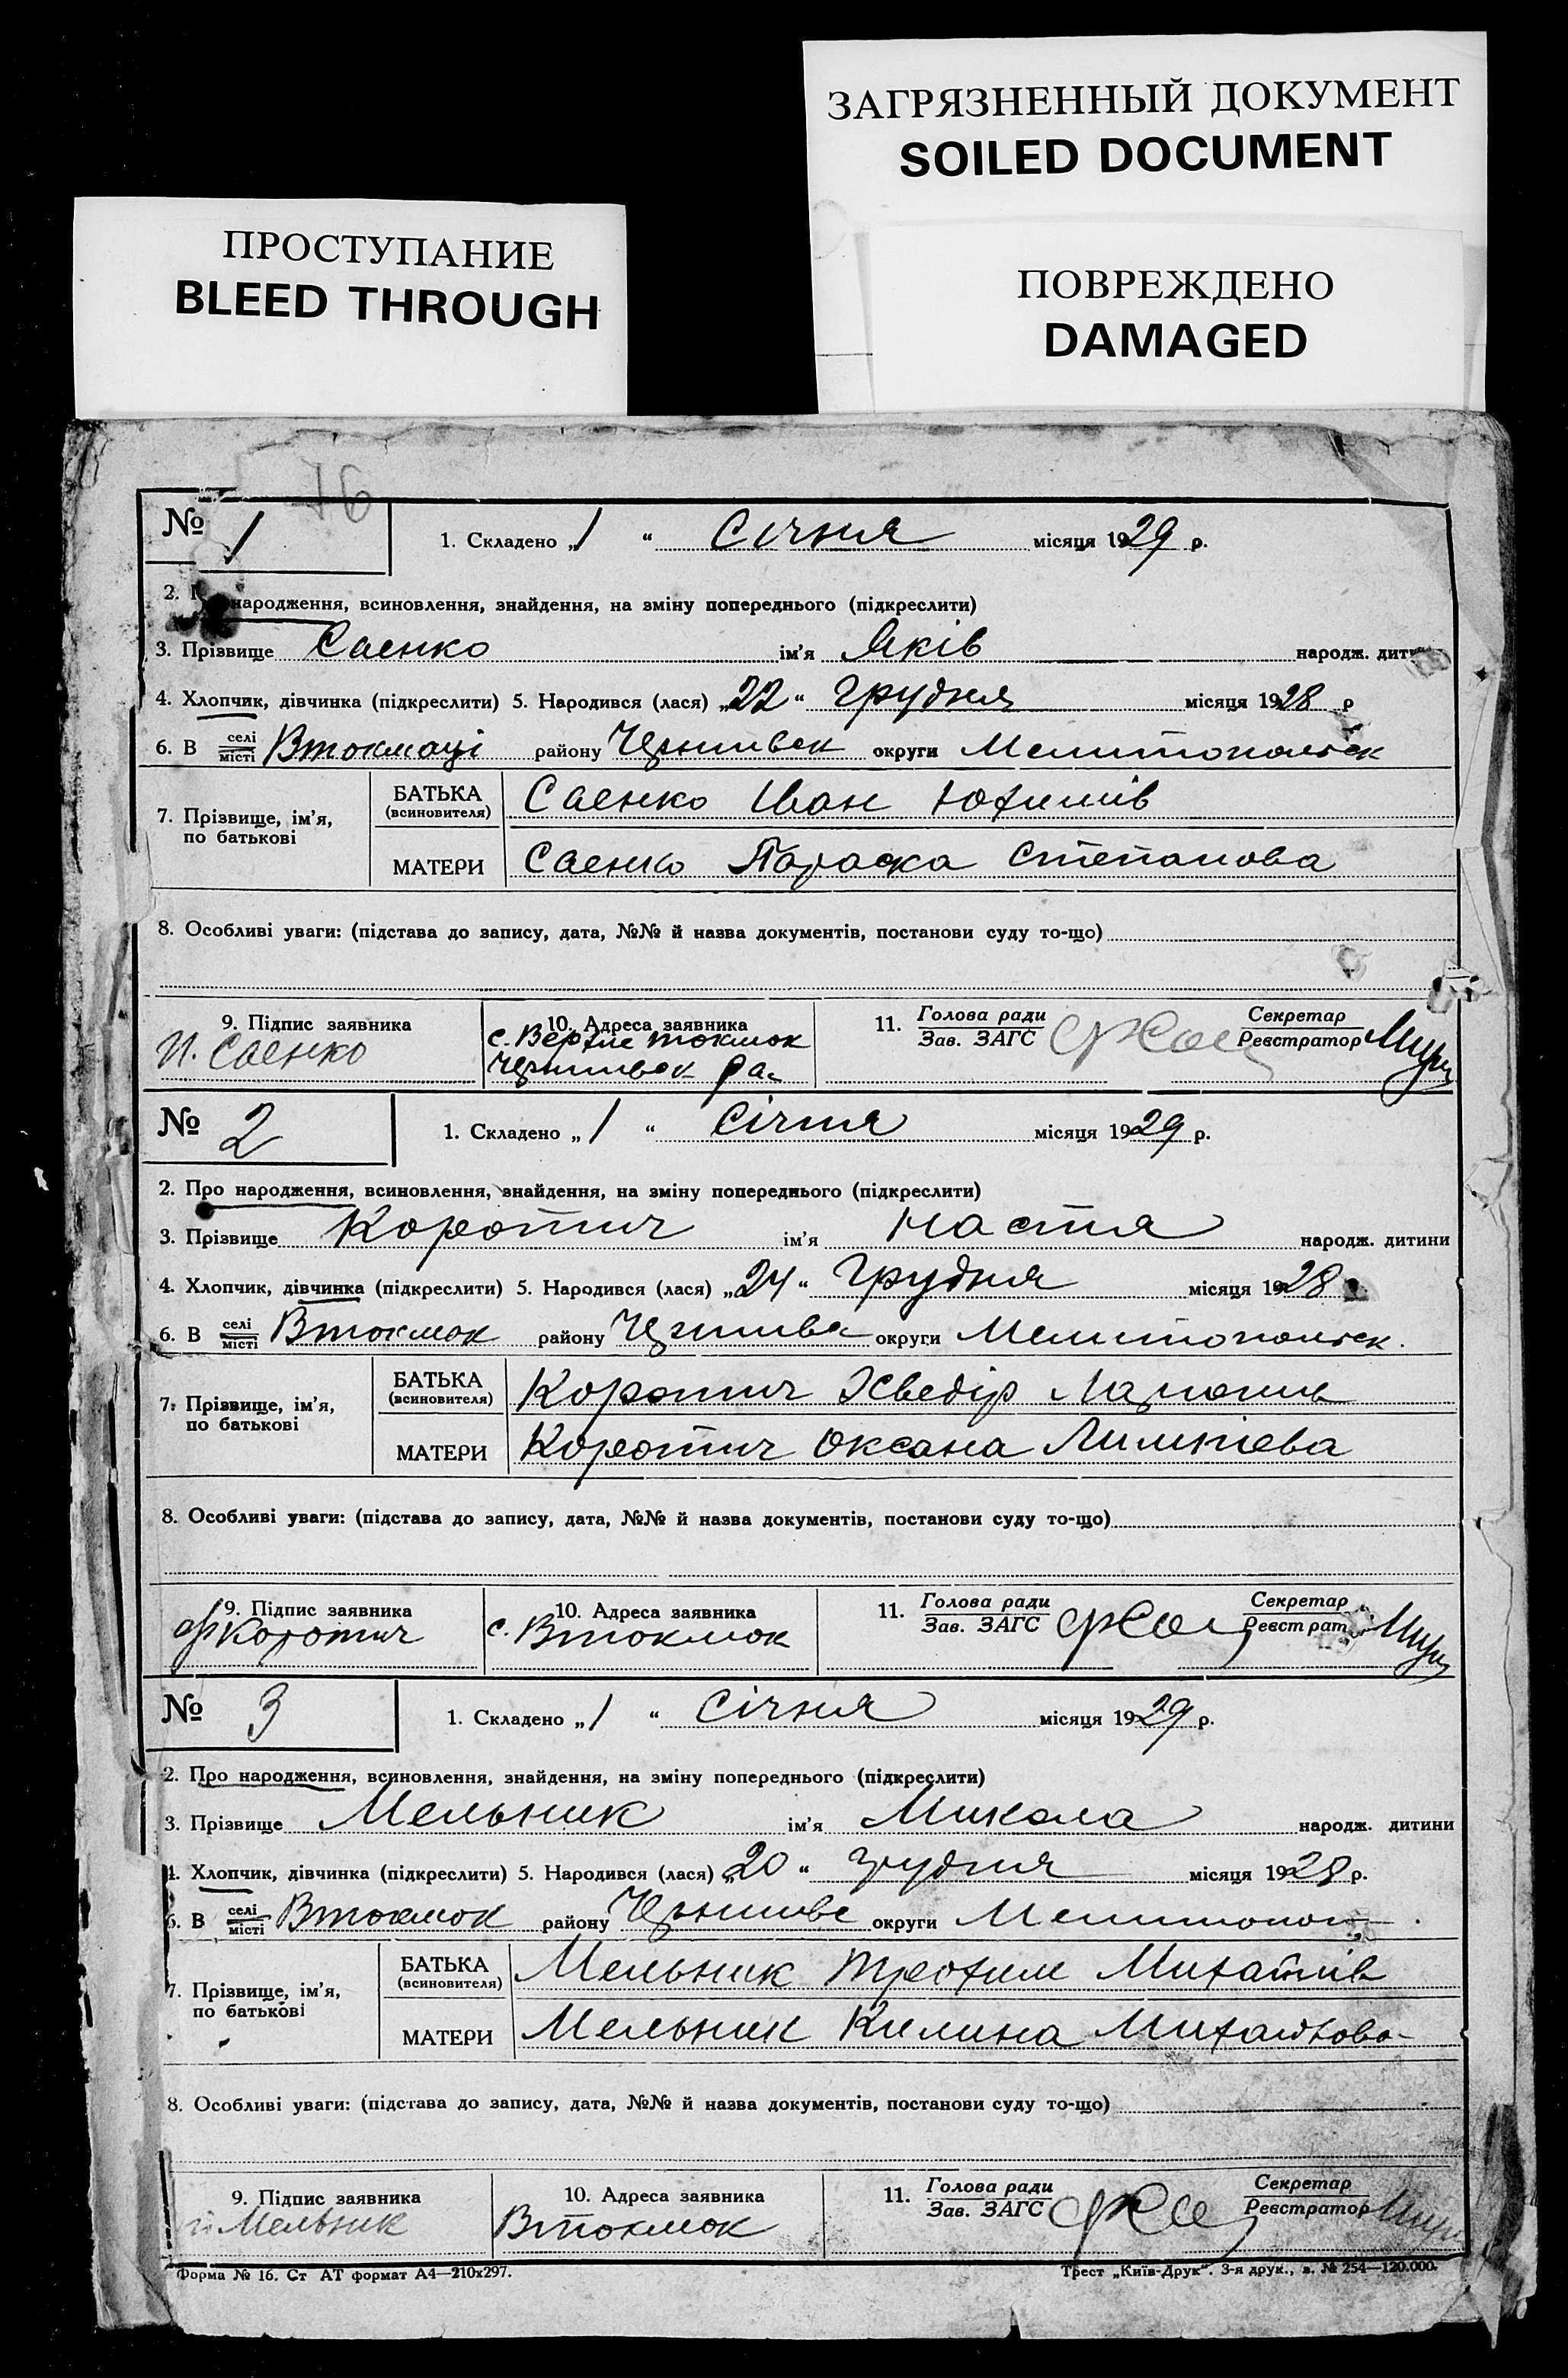 ЗАГРЯЗНЕННЫЙ ДОКУМЕНТ
SOILED DOCUMENT
ПРОСТУПАНИЕ
BLEED THROUGH
ПОВРЕЖДЕНО
DAMAGED
16
№ 1
1. Складено „1“ Січня місяця 1929 р.
2. народження, всиновлення, знайдення, на зміну попереднього (підкреслити)
3. Прізвище Саенко ім'я Яків народж.
4. Хлопчик, дівчинка (підкреслити) 5. Народився (лася) „22“ Грудня місяця 1928 р
6. В селі місті Втокмаці району округи Мелитопольск
7. Прізвище, ім'я, по батькові
БАТЬКА (всиновителя) Саенко Іван Юхимів
МАТЕРИ Саенко Параска Степанова
8. Особливі уваги: (підстава до запису, дата, №№ й назва документів, постанови суду то-що)
9. Підпис заявника
И. Саенко
10. Адреса заявника
с. токмок
11. Голова ради
Зав. ЗАГС
Секретар
Реєстратор
№ 2
1. Складено „1“ Січня місяця 1929 р.
2. Про народження, всиновлення, знайдення, на зміну попереднього (підкреслити)
3. Прізвище Коротич ім'я Настя народж. дитини
4. Хлопчик, дівчинка (підкреслити) 5. Народився (лася) „24“ Грудня місяця 1928
6. В селі місті Втокмок району округи Мелитопольск.
7. Прізвище, ім'я, по батькові
БАТЬКА (всиновителя) Коротич Хведір
МАТЕРИ Коротич Оксана
8. Особливі уваги: (підстава до запису, дата, №№ й назва документів, постанови суду то-що)
9. Підпис заявника
Ф Коротич
10. Адреса заявника
с. Втокмок
11. Голова ради
Зав. ЗАГС
Секретар
№ 3
1. Складено „1“ Січня місяця 1929 р.
2. Про народження, всиновлення, знайдення, на зміну попереднього (підкреслити)
3. Прізвище Мельник ім'я Микола народж. дитини
4. Хлопчик, дівчинка (підкреслити) 5. Народився (лася) „20“ грудня місяця 1928 р.
6. В селі місті Втокмок району округи
7. Прізвище, ім'я, по батькові
БАТЬКА (всиновителя) Мельник Трохим
МАТЕРИ Мельник Килина
8. Особливі уваги: (підстава до запису, дата, №№ й назва документів, постанови суду то-що)
9. Підпис заявника
Мельник
10. Адреса заявника
Втокмок
11. Голова ради
Зав. ЗАГС
Секретар
Реєстратор
Форма № 16. Ст АТ формат А4—210х297.
Трест „Київ-Друк“. 3-я друк., з. № 254—120.000.